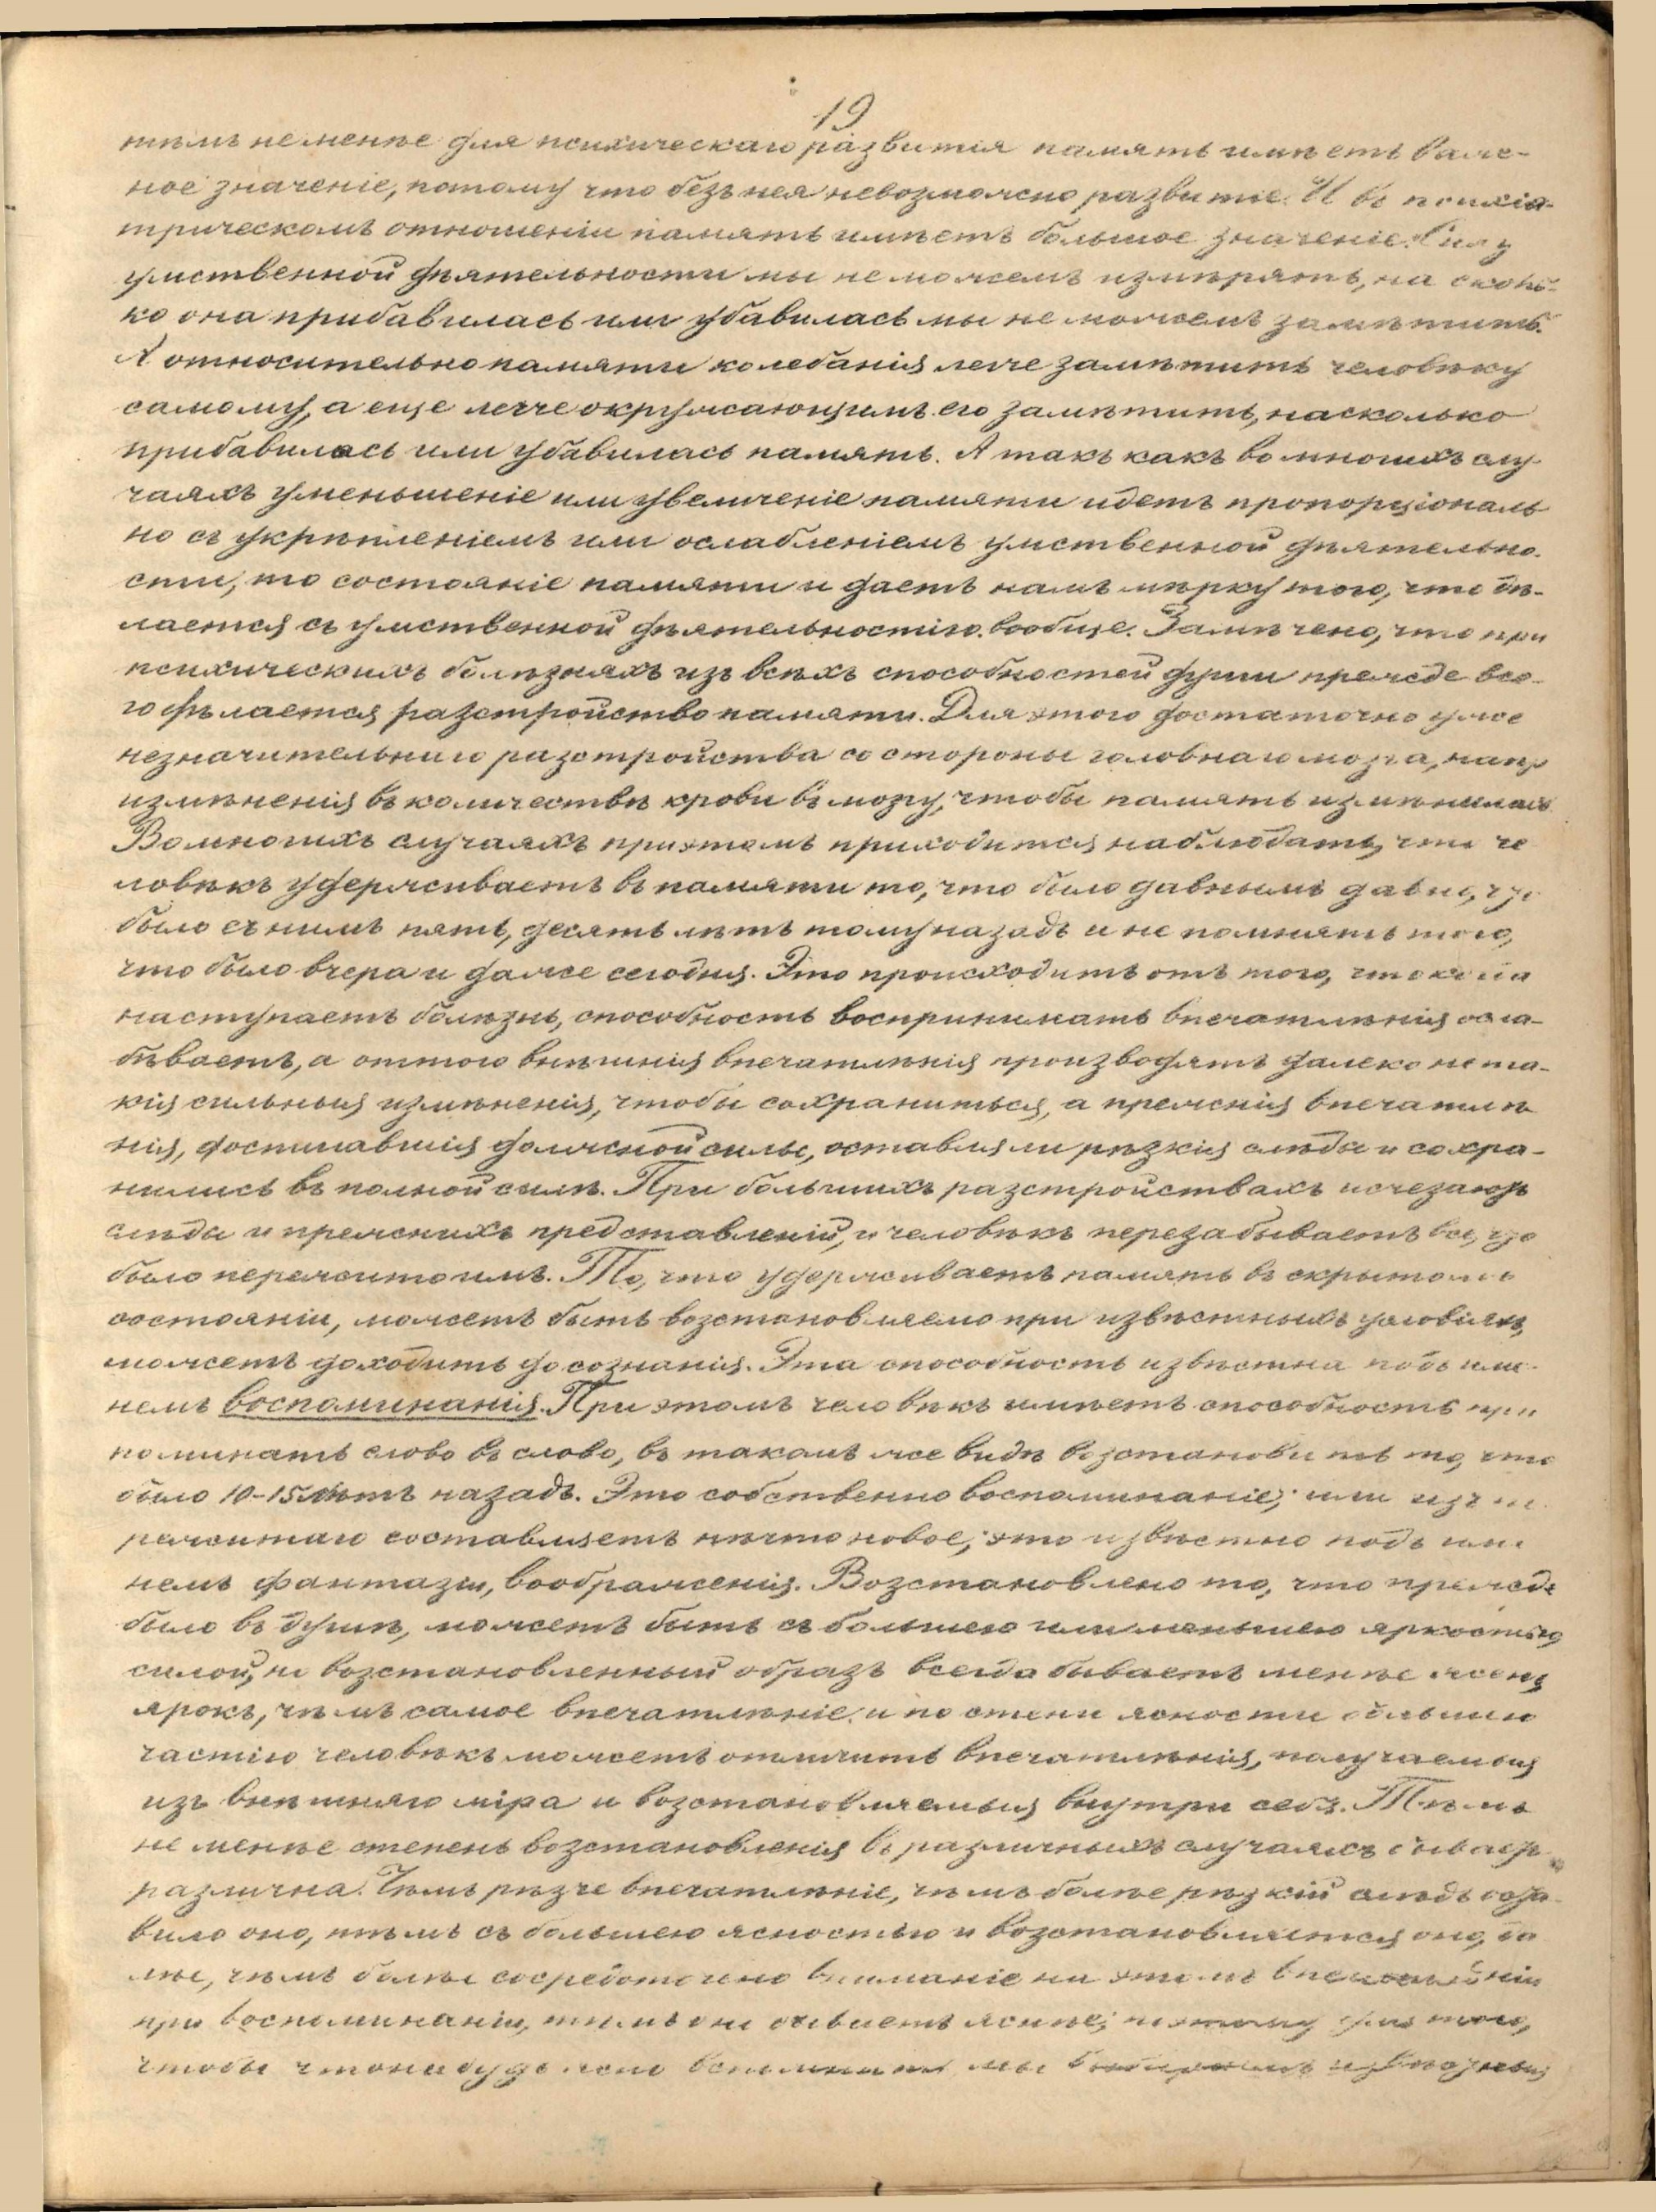 19
тѣмъ не менѣе для психическаго развитія память имѣетъ важ-
ное значеніе, потому что безъ нея невозможно развитіе. И въ психіа-
трическомъ отношеніи память имѣетъ большое значеніе. Силу
умственной дѣятельности мы не можемъ измѣрять, на сколь-
ко она прибавилась или убавилась мы не можемъ замѣтить.
А относительно памяти колебанія легче замѣтить человѣку
самому, а еще легче окружающимъ его замѣтить, насколько
прибавилась или убавилась память. А такъ какъ во многихъ слу-
чаяхъ уменьшеніе или увеличеніе памяти идетъ пропорціональ-
но съ укрѣпленіемъ или ослабленіемъ умственной дѣятельно-
сти, то состояніе памяти и даетъ намъ мѣрку того, что дѣ-
лается съ умственной дѣятельностію вообще. Замѣчено, что при
психическихъ болѣзняхъ изъ всѣхъ способностей души прежде все-
го дѣлается разстройство памяти. Для этого достаточно уже
незначительнаго разстройства со стороны головнаго мозга, напр
измѣненія въ количествѣ крови въ мозгу, чтобы память измѣнилась
Во многихъ случаяхъ при этомъ приходится наблюдать, что че
ловѣкъ удерживаетъ въ памяти то, что было давнымъ давно, что
было съ нимъ пять, десять лѣтъ тому назадъ и не помнятъ того,
что было вчера и даже сегодня. Это происходитъ отъ того, что когда
наступаетъ болѣзнь, способность воспринимать впечатлѣнія осла-
бѣваетъ, а оттого внѣшнія впечатлѣнія производятъ далеко не та-
кія сильныя измѣненія, чтобы сохраниться, а прежнія впечатлѣ
нія, достигавшія должной силы, оставляли рѣзкія слѣды и сохра-
нились въ полной силѣ. При большихъ разстройствахъ исчезаютъ
слѣды и прежнихъ представленій, и человѣкъ перезабываетъ все, что
было пережито имъ. То, что удерживаетъ память въ скрытомъ
состояніи, можетъ быть возстановляемо при извѣстныхъ условіяхъ,
можетъ доходить до сознанія. Эта способность извѣстна подъ име-
немъ воспоминанія. При этомъ человѣкъ имѣетъ способность при
поминать слово въ слово, въ такомъ же видѣ возстановить то, что
было 10-15 лѣтъ назадъ. Это собственно воспоминаніе; или изъ пе
режитаго составляетъ нѣчто новое; это извѣстно подъ име
немъ фантазіи, воображенія. Возстановлено то, что прежде
было въ душѣ, можетъ быть съ большею или меньшею яркостью,
силой, но возстановленный образъ всегда бываетъ менѣе ясенъ,
ярокъ, чѣмъ самое впечатлѣніе, и по степи ясности большею
частію человѣкъ можетъ отличить впечатлѣнія, получаемыя
изъ внѣшняго міра и возстановляемыя внутри себя. Тѣмъ
не менѣе степень возстановленія въ различныхъ случаяхъ бываетъ
различна. Чѣмъ рѣзче впечатлѣніе, чѣмъ болѣе рѣзкій слѣдъ оста-
вило оно, тѣмъ съ большею ясностью и возстановляется оно, да
лѣе, чѣмъ болѣе сосредоточено вниманіе на этомъ впечатлѣніи
при воспоминаніи, тѣмъ оно бываетъ яснѣе; поэтому для того,
чтобы что нибудь ясно вспомнить мы